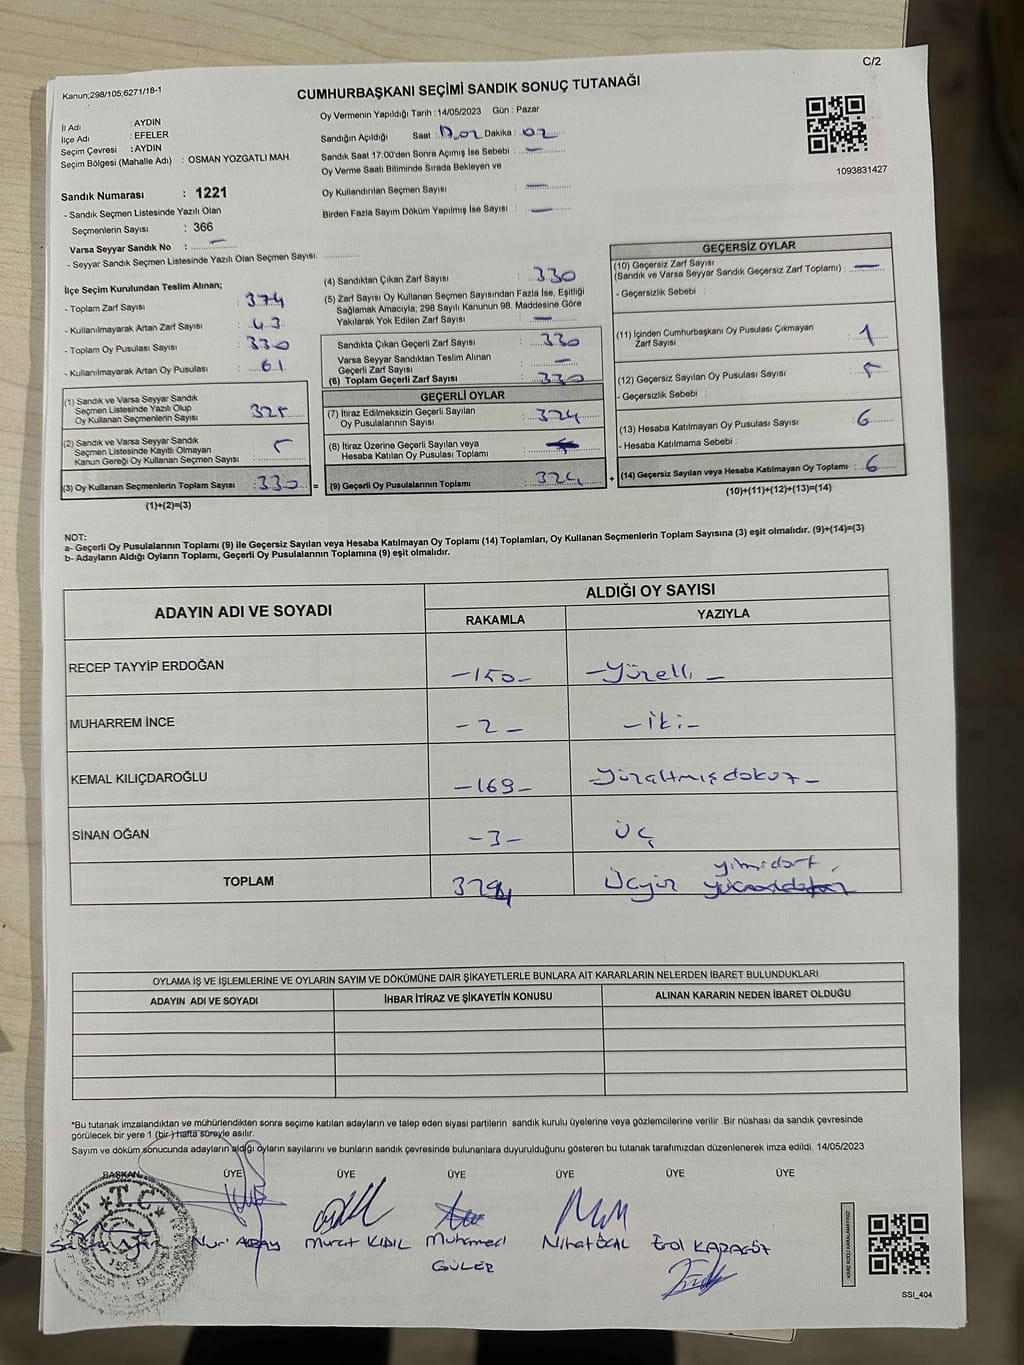 C/2
Kanun;298/105;6271/18-1
CUMHURBAŞKANI SEÇİMİ SANDIK SONUÇ TUTANAĞI
İl Adı : AYDIN
İlçe Adı : EFELER
Seçim Çevresi : AYDIN
Seçim Bölgesi (Mahalle Adı) : OSMAN YOZGATLI MAH.
Oy Vermenin Yapıldığı Tarih : 14/05/2023 Gün : Pazar
Sandığın Açıldığı Saat : Dakika : 02
Sandık Saat 17:00'den Sonra Açımış İse Sebebi : —
Oy Verme Saati Bitiminde Sırada Bekleyen ve
Oy Kullandırılan Seçmen Sayısı : —
Birden Fazla Sayım Döküm Yapılmış İse Sayısı : —
1093831427
Sandık Numarası : 1221
- Sandık Seçmen Listesinde Yazılı Olan
Seçmenlerin Sayısı : 366
Varsa Seyyar Sandık No : —
- Seyyar Sandık Seçmen Listesinde Yazılı Olan Seçmen Sayısı:
İlçe Seçim Kurulundan Teslim Alınan;
- Toplam Zarf Sayısı : 374
- Kullanılmayarak Artan Zarf Sayısı : 43
- Toplam Oy Pusulası Sayısı : 330
- Kullanılmayarak Artan Oy Pusulası : 61
(1) Sandık ve Varsa Seyyar Sandık
Seçmen Listesinde Yazılı Olup
Oy Kullanan Seçmenlerin Sayısı : 325
(2) Sandık ve Varsa Seyyar Sandık
Seçmen Listesinde Kayıtlı Olmayan
Kanun Gereği Oy Kullanan Seçmen Sayısı : 5
(3) Oy Kullanan Seçmenlerin Toplam Sayısı : 330
(1)+(2)=(3)
(4) Sandıktan Çıkan Zarf Sayısı : 330
(5) Zarf Sayısı Oy Kullanan Seçmen Sayısından Fazla İse, Eşitliği
Sağlamak Amacıyla; 298 Sayılı Kanunun 98. Maddesine Göre
Yakılarak Yok Edilen Zarf Sayısı : —
Sandıkta Çıkan Geçerli Zarf Sayısı : 330
Varsa Seyyar Sandıktan Teslim Alınan
Geçerli Zarf Sayısı : —
(6) Toplam Geçerli Zarf Sayısı : 330
GEÇERLİ OYLAR
(7) İtiraz Edilmeksizin Geçerli Sayılan
Oy Pusulalarının Sayısı : 324
(8) İtiraz Üzerine Geçerli Sayılan veya
Hesaba Katılan Oy Pusulası Toplamı :
= (9) Geçerli Oy Pusulalarının Toplamı : 324
GEÇERSİZ OYLAR
(10) Geçersiz Zarf Sayısı
(Sandık ve Varsa Seyyar Sandık Geçersiz Zarf Toplamı) : —
- Geçersizlik Sebebi :
(11) İçinden Cumhurbaşkanı Oy Pusulası Çıkmayan
Zarf Sayısı : 1
(12) Geçersiz Sayılan Oy Pusulası Sayısı : 5
- Geçersizlik Sebebi :
(13) Hesaba Katılmayan Oy Pusulası Sayısı : 6
- Hesaba Katılmama Sebebi :
+ (14) Geçersiz Sayılan veya Hesaba Katılmayan Oy Toplamı : 6
(10)+(11)+(12)+(13)=(14)
NOT:
a- Geçerli Oy Pusulalarının Toplamı (9) ile Geçersiz Sayılan veya Hesaba Katılmayan Oy Toplamı (14) Toplamları, Oy Kullanan Seçmenlerin Toplam Sayısına (3) eşit olmalıdır. (9)+(14)=(3)
b- Adayların Aldığı Oyların Toplamı, Geçerli Oy Pusulalarının Toplamına (9) eşit olmalıdır.
ADAYIN ADI VE SOYADI ALDIĞI OY SAYISI
RAKAMLA YAZIYLA
RECEP TAYYİP ERDOĞAN -150- -Yüzelli-
MUHARREM İNCE -2- -İki-
KEMAL KILIÇDAROĞLU -169- -Yüzaltmışdokuz-
SİNAN OĞAN -3- Üç
TOPLAM Üçyüz yirmidört
OYLAMA İŞ VE İŞLEMLERİNE VE OYLARIN SAYIM VE DÖKÜMÜNE DAİR ŞİKAYETLERLE BUNLARA AİT KARARLARIN NELERDEN İBARET BULUNDUKLARI
ADAYIN ADI VE SOYADI İHBAR İTİRAZ VE ŞİKAYETİN KONUSU ALINAN KARARIN NEDEN İBARET OLDUĞU
*Bu tutanak imzalandıktan ve mühürlendikten sonra seçime katılan adayların ve talep eden siyasi partilerin sandık kurulu üyelerine veya gözlemcilerine verilir. Bir nüshası da sandık çevresinde
görülecek bir yere 1 (bir) hafta süreyle asılır.
Sayım ve döküm sonucunda adayların aldığı oyların sayılarını ve bunların sandık çevresinde bulunanlara duyurulduğunu gösteren bu tutanak tarafımızdan düzenlenerek imza edildi. 14/05/2023
BAŞKAN ÜYE ÜYE ÜYE ÜYE ÜYE ÜYE
T.C
Nuri Murat KIDIL Muhamed GÜLER Nihat ÖCAL Erol KARAGÖZ
SSI_404